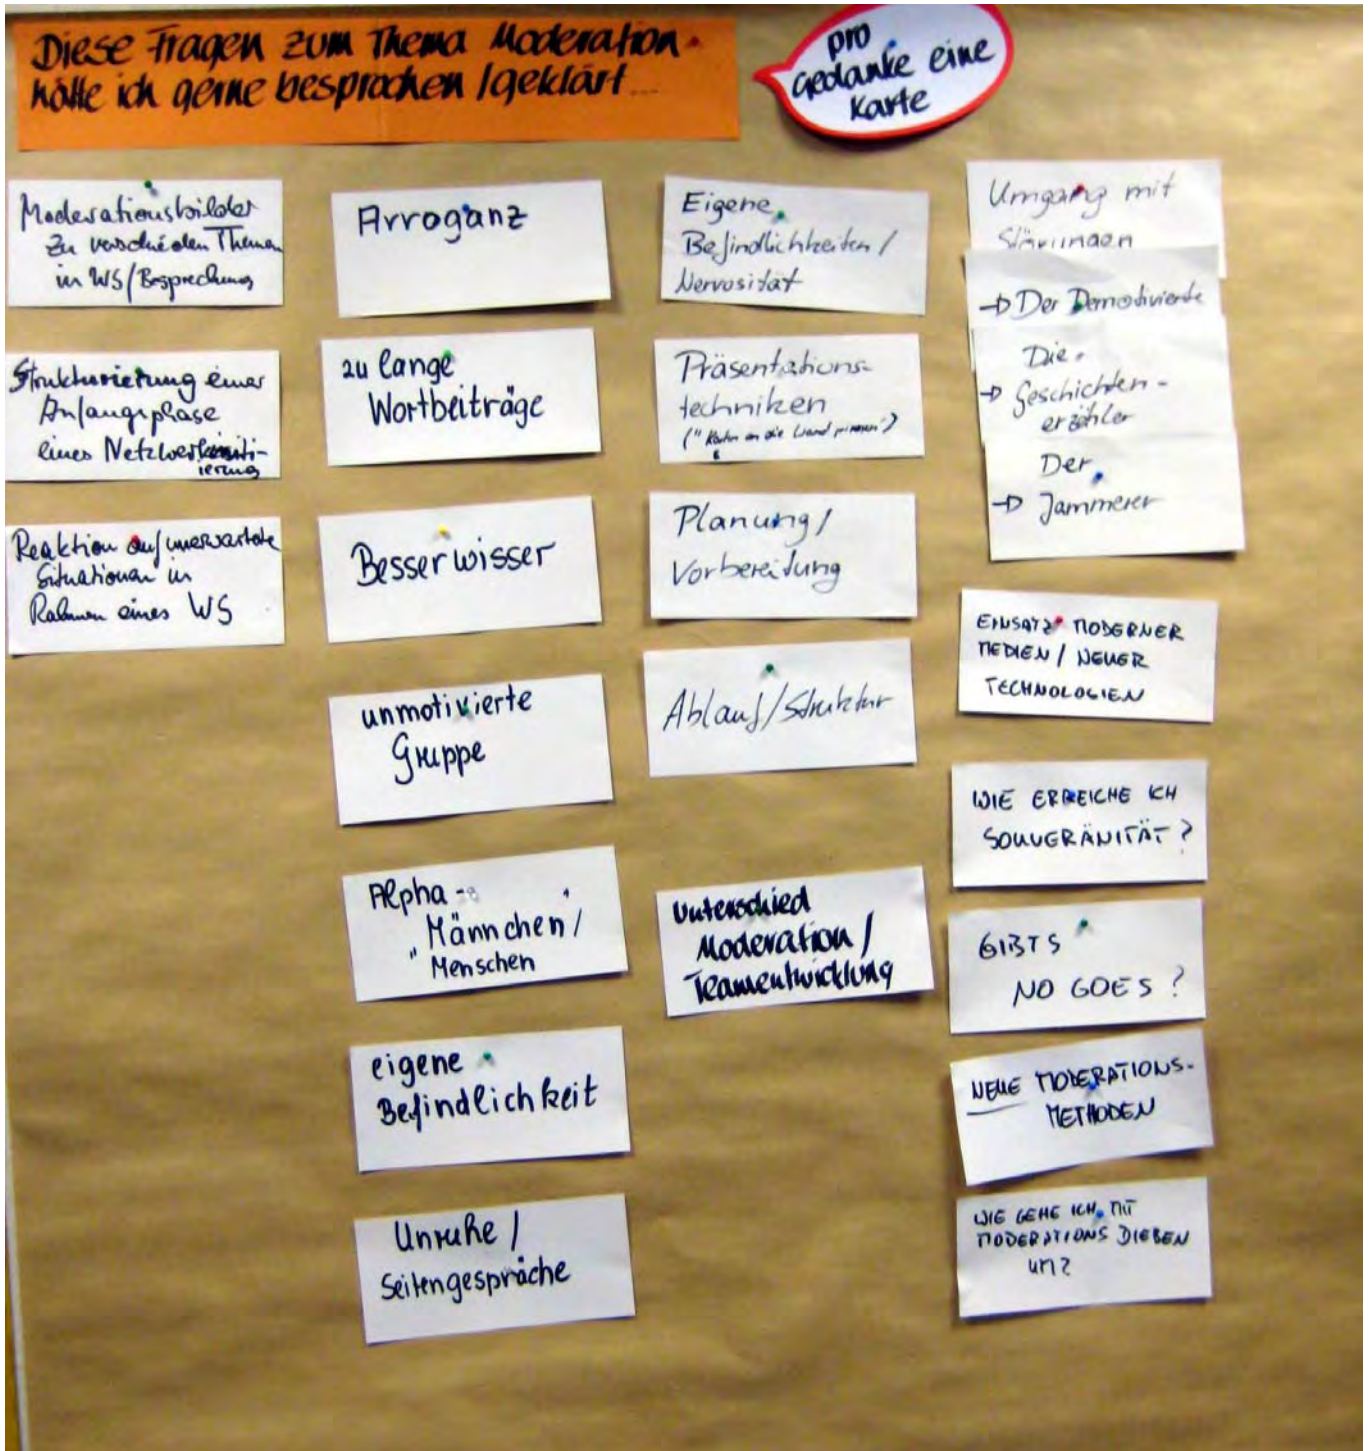 Diese Fragen zum Thema Moderation
hätte ich gerne besprochen / geklärt ...
pro
Gedanke eine
Karte
Moderationsbilder
zu verschieden Themen
in WS/Besprechung
Strukturierung einer
Anfangsphase
eines Netzwerkiniti-
ierung
Reaktion auf unerwartete
Situationen in
Rahmen eines WS
Arroganz
zu lange
Wortbeiträge
Besserwisser
unmotivierte
Gruppe
Alpha-
"Männchen"/
Menschen
eigene
Befindlichkeit
Unruhe /
Seitengespräche
Eigene
Befindlichkeiten /
Nervosität
Präsentations-
techniken
("Karten an die Wand pinnen")
Planung /
Vorbereitung
Ablauf/Struktur
Unterschied
Moderation /
Teamentwicklung
Umgang mit
Störungen
→ Der Demotivierte
Die
→ Geschichten-
erzähler
Der
→ Jammerer
EINSATZ MODERNER
MEDIEN / NEUER
TECHNOLOGIEN
WIE ERREICHE ICH
SOUVERÄNITÄT?
GIBTS
NO GOES?
NEUE MODERATIONS-
METHODEN
WIE GEHE ICH MIT
MODERATIONS DIEBEN
UM?